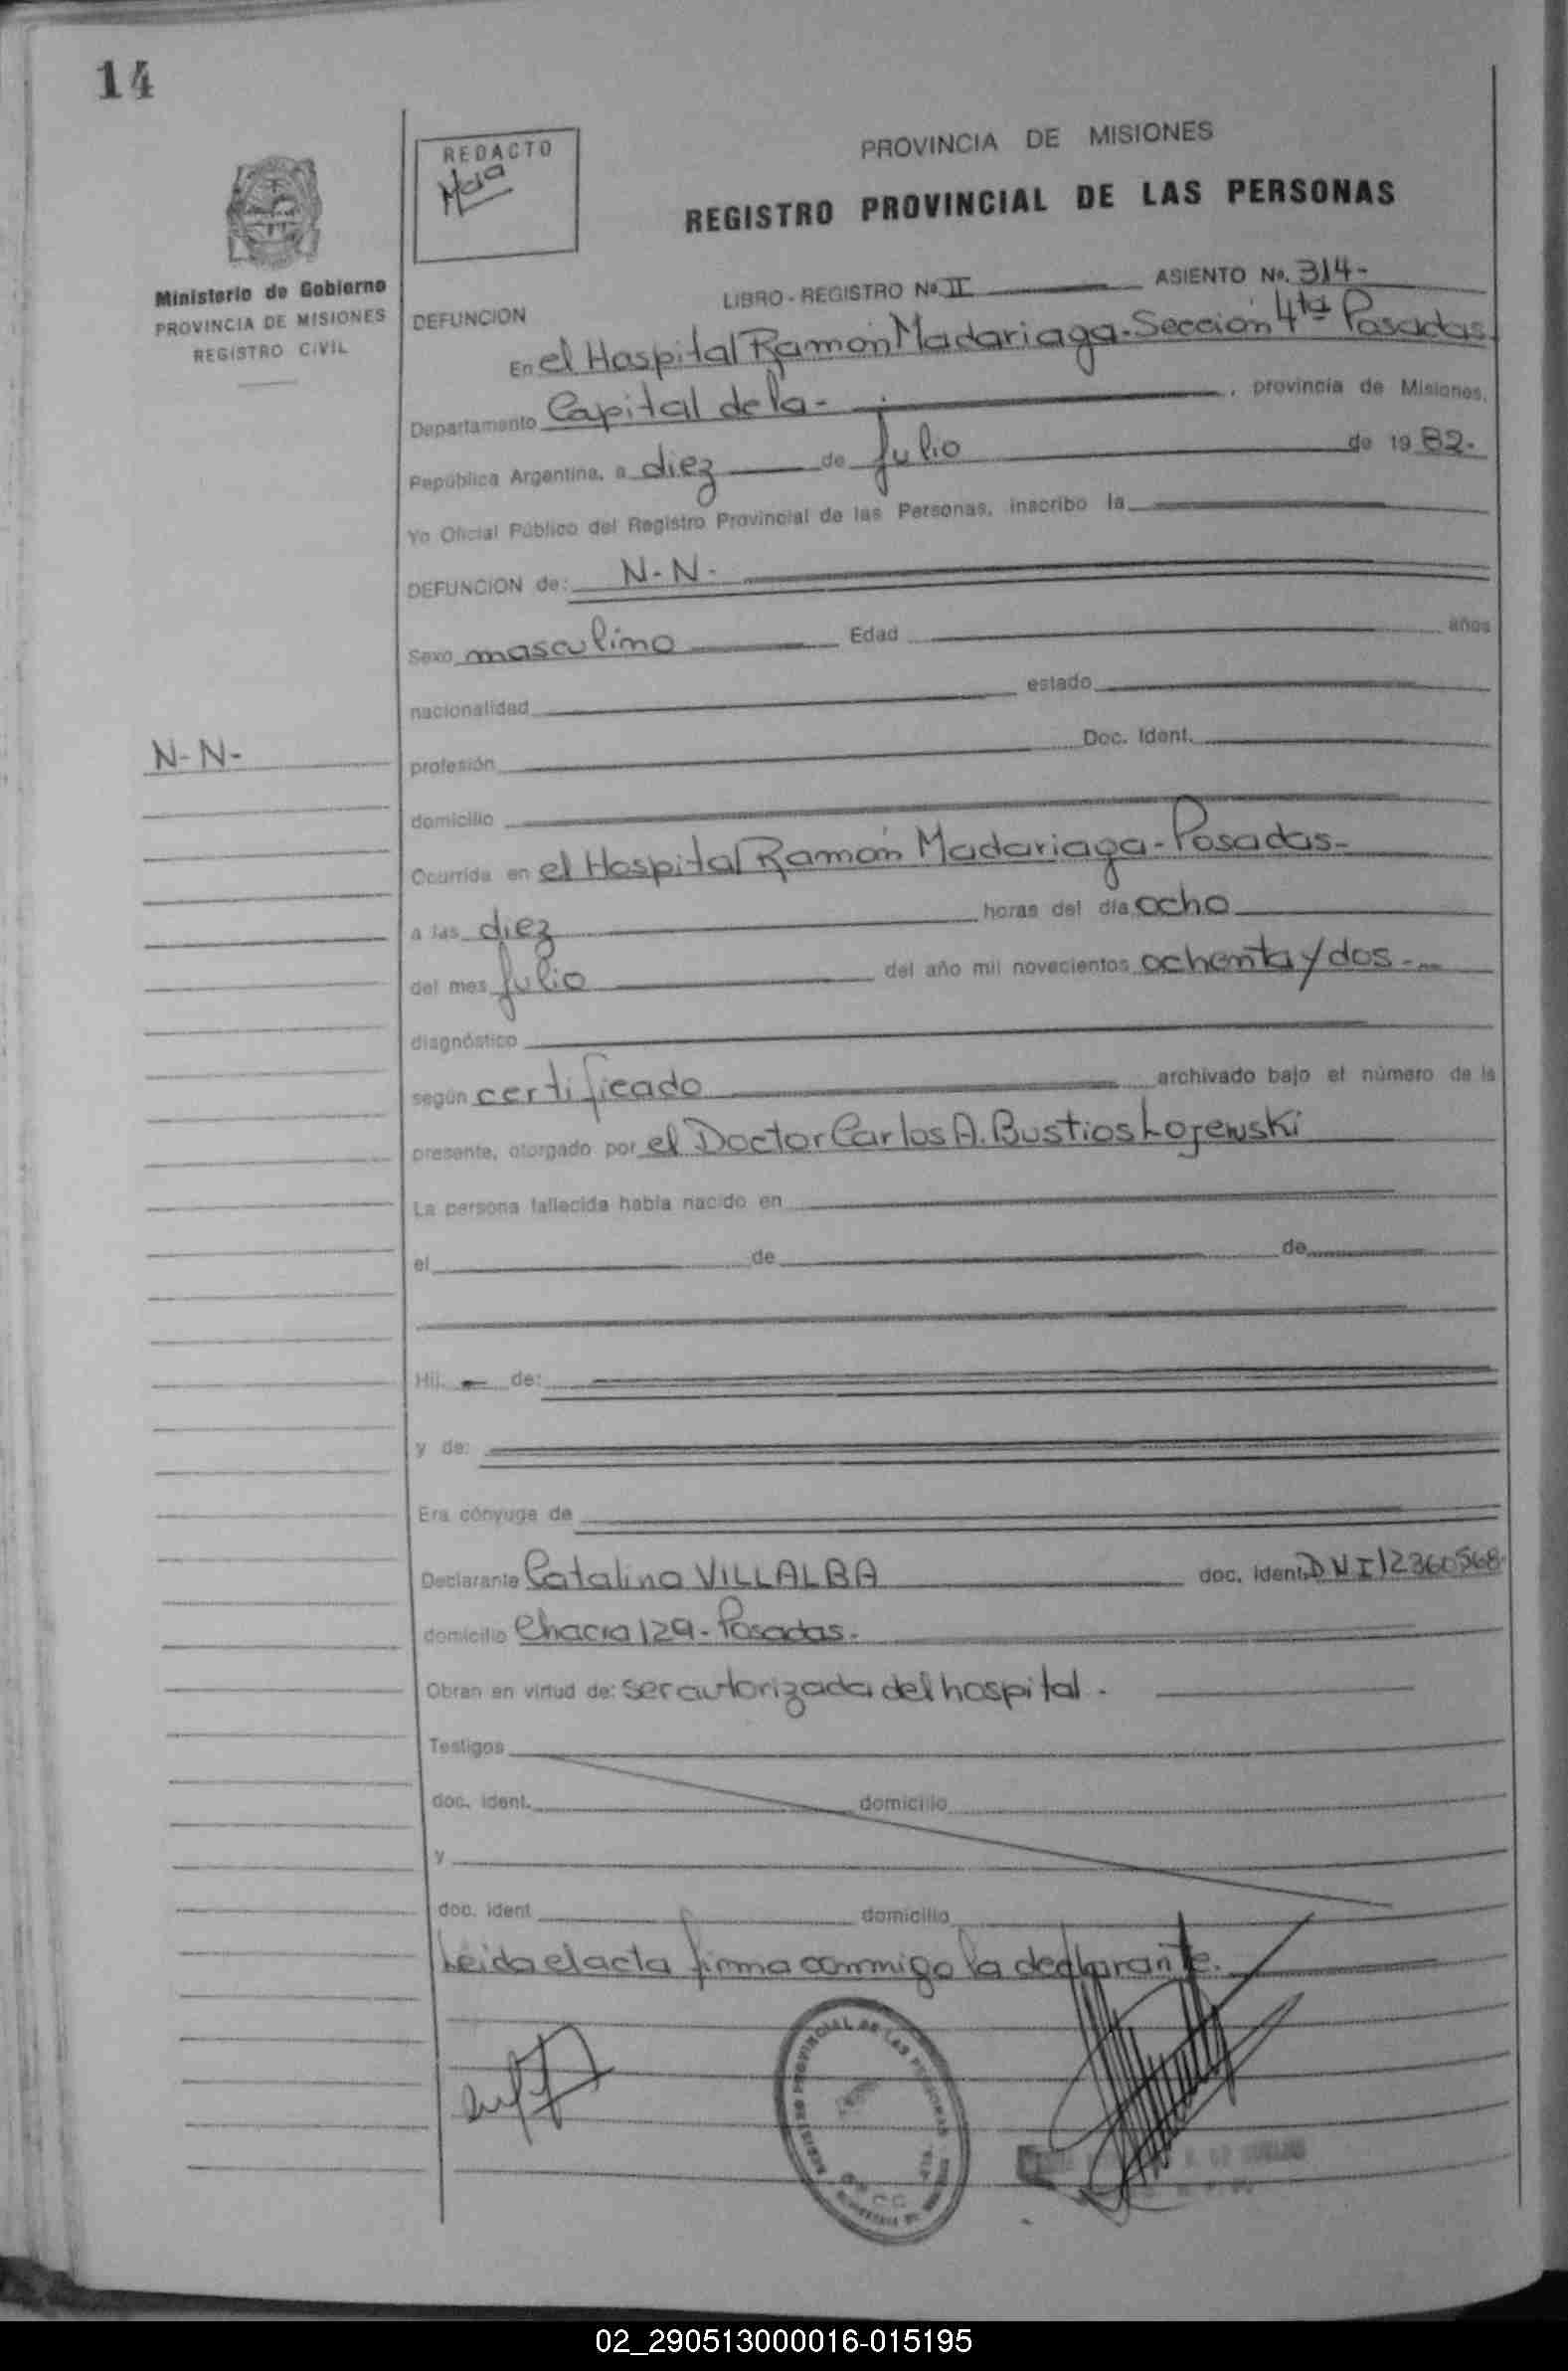 14
REDACTO
PROVINCIA DE MISIONES
REGISTRO PROVINCIAL DE LAS PERSONAS
Ministerio de Gobierno
PROVINCIA DE MISIONES
REGISTRO CIVIL
LIBRO - REGISTRO No. II ASIENTO No. 314-
DEFUNCION
En el Hospital Ramón Madariaga - Sección 4ta Posadas
Departamento Capital de la - , provincia de Misiones,
República Argentina, a diez de Julio de 19 82.
Yo Oficial Público del Registro Provincial de las Personas, inscribo la
DEFUNCION de: N-N-
Sexo masculino Edad años
nacionalidad estado
N-N-
profesión Doc. Ident.
domicilio
Ocurrida en el Hospital Ramón Madariaga - Posadas-
a las diez horas del día ocho
del mes Julio del año mil novecientos ochenta y dos.-
diagnóstico
según certificado archivado bajo el número de la
presente, otorgado por el Doctor Carlos A. Bustios Lojewski
La persona fallecida había nacido en
el de de
Hij - de:
y de:
Era cónyuge de
Declarante Catalina VILLALBA doc. ident. DNI 12360568-
domicilio Chacra 129 - Posadas.
Obran en virtud de: ser autorizada del hospital.
Testigos
doc. ident. domicilio
y
doc. ident domicilio
Leida el acta firma conmigo la declarante.
REGISTRO PROVINCIAL DE LAS PERSONAS
02_290513000016-015195